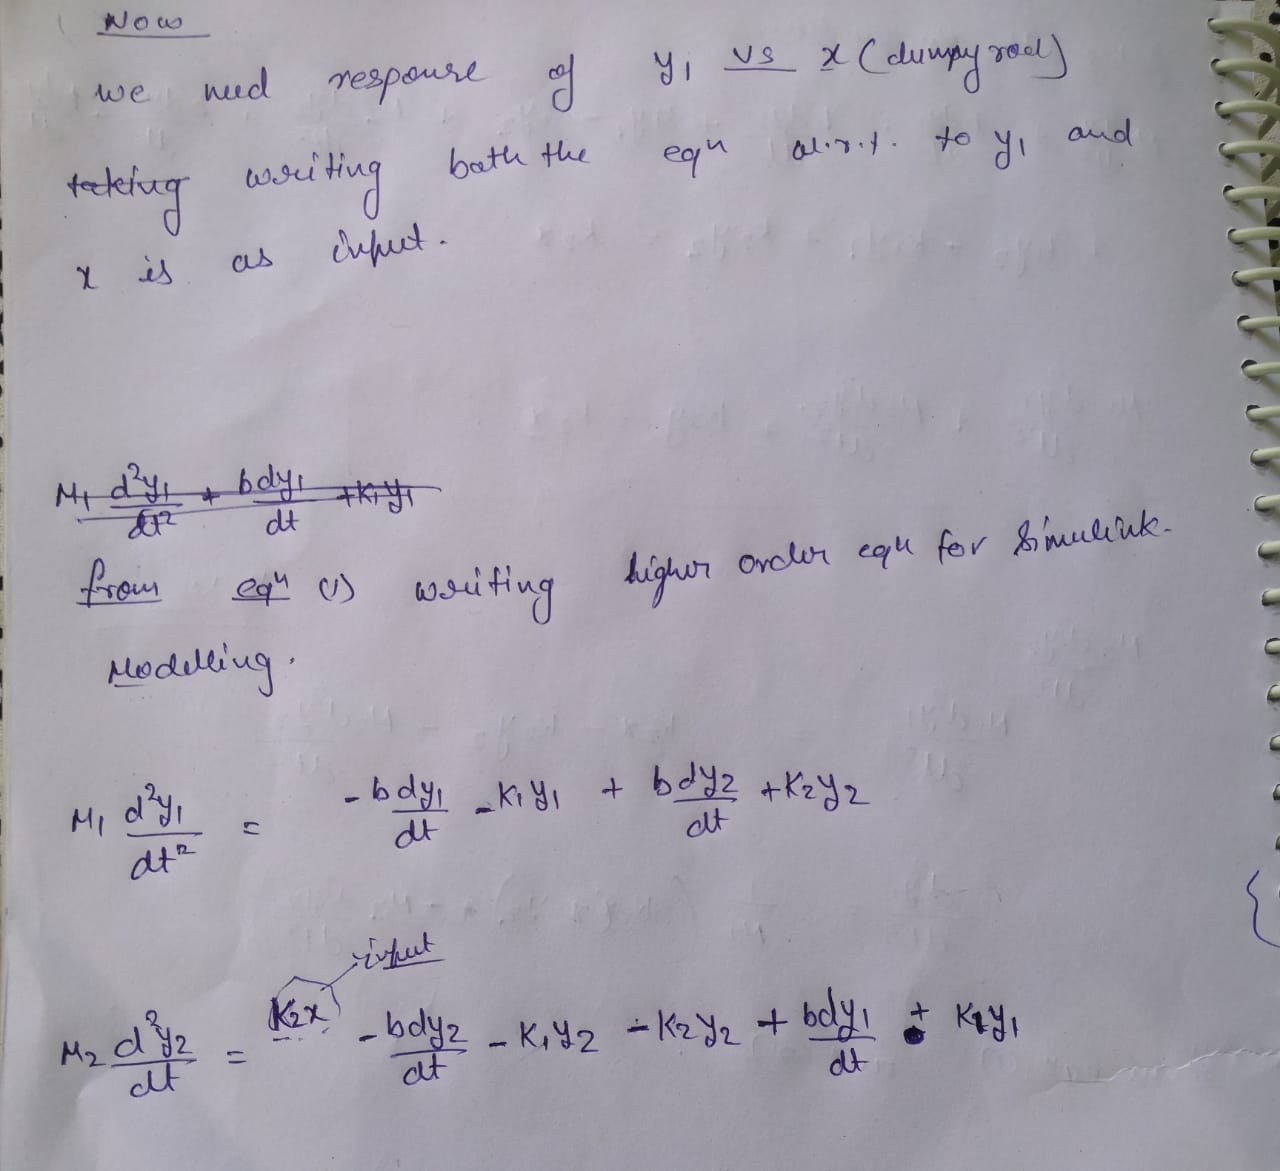 Now
we need response of y₁ vs x (dumpy road)
writing both the eqn w.r.t. to y₁ and
x is as input.
M₁ d²y₁/dt² + bdy₁/dt + K₁y₁
from eqⁿ (1) writing higher order eqn for Simulink
Modelling.
M₁ d²y₁/dt² = - bdy₁/dt - K₁y₁ + bdy₂/dt + K₂y₂
input
M₂ d²y₂/dt = K₂x - bdy₂/dt - K₁y₂ - K₂y₂ + bdy₁/dt + K₁y₁